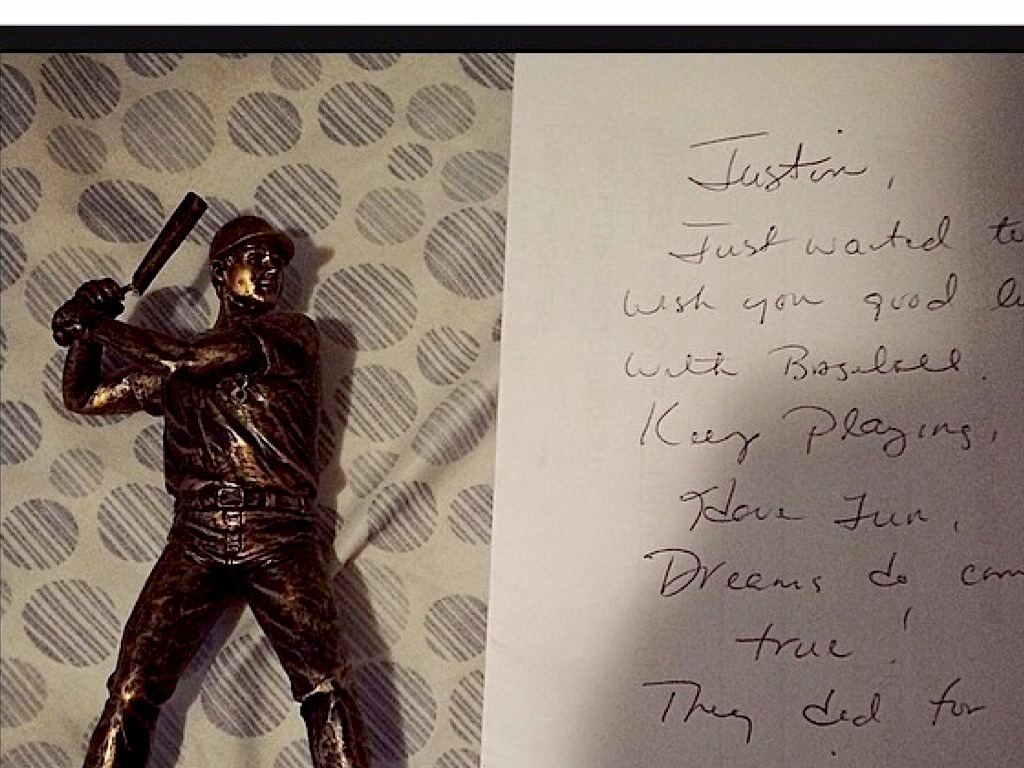 Justin,
Just wanted to
wish you good
with Baseball.
Keep Playing,
Have Fun,
Dreams do com
true!
They did for